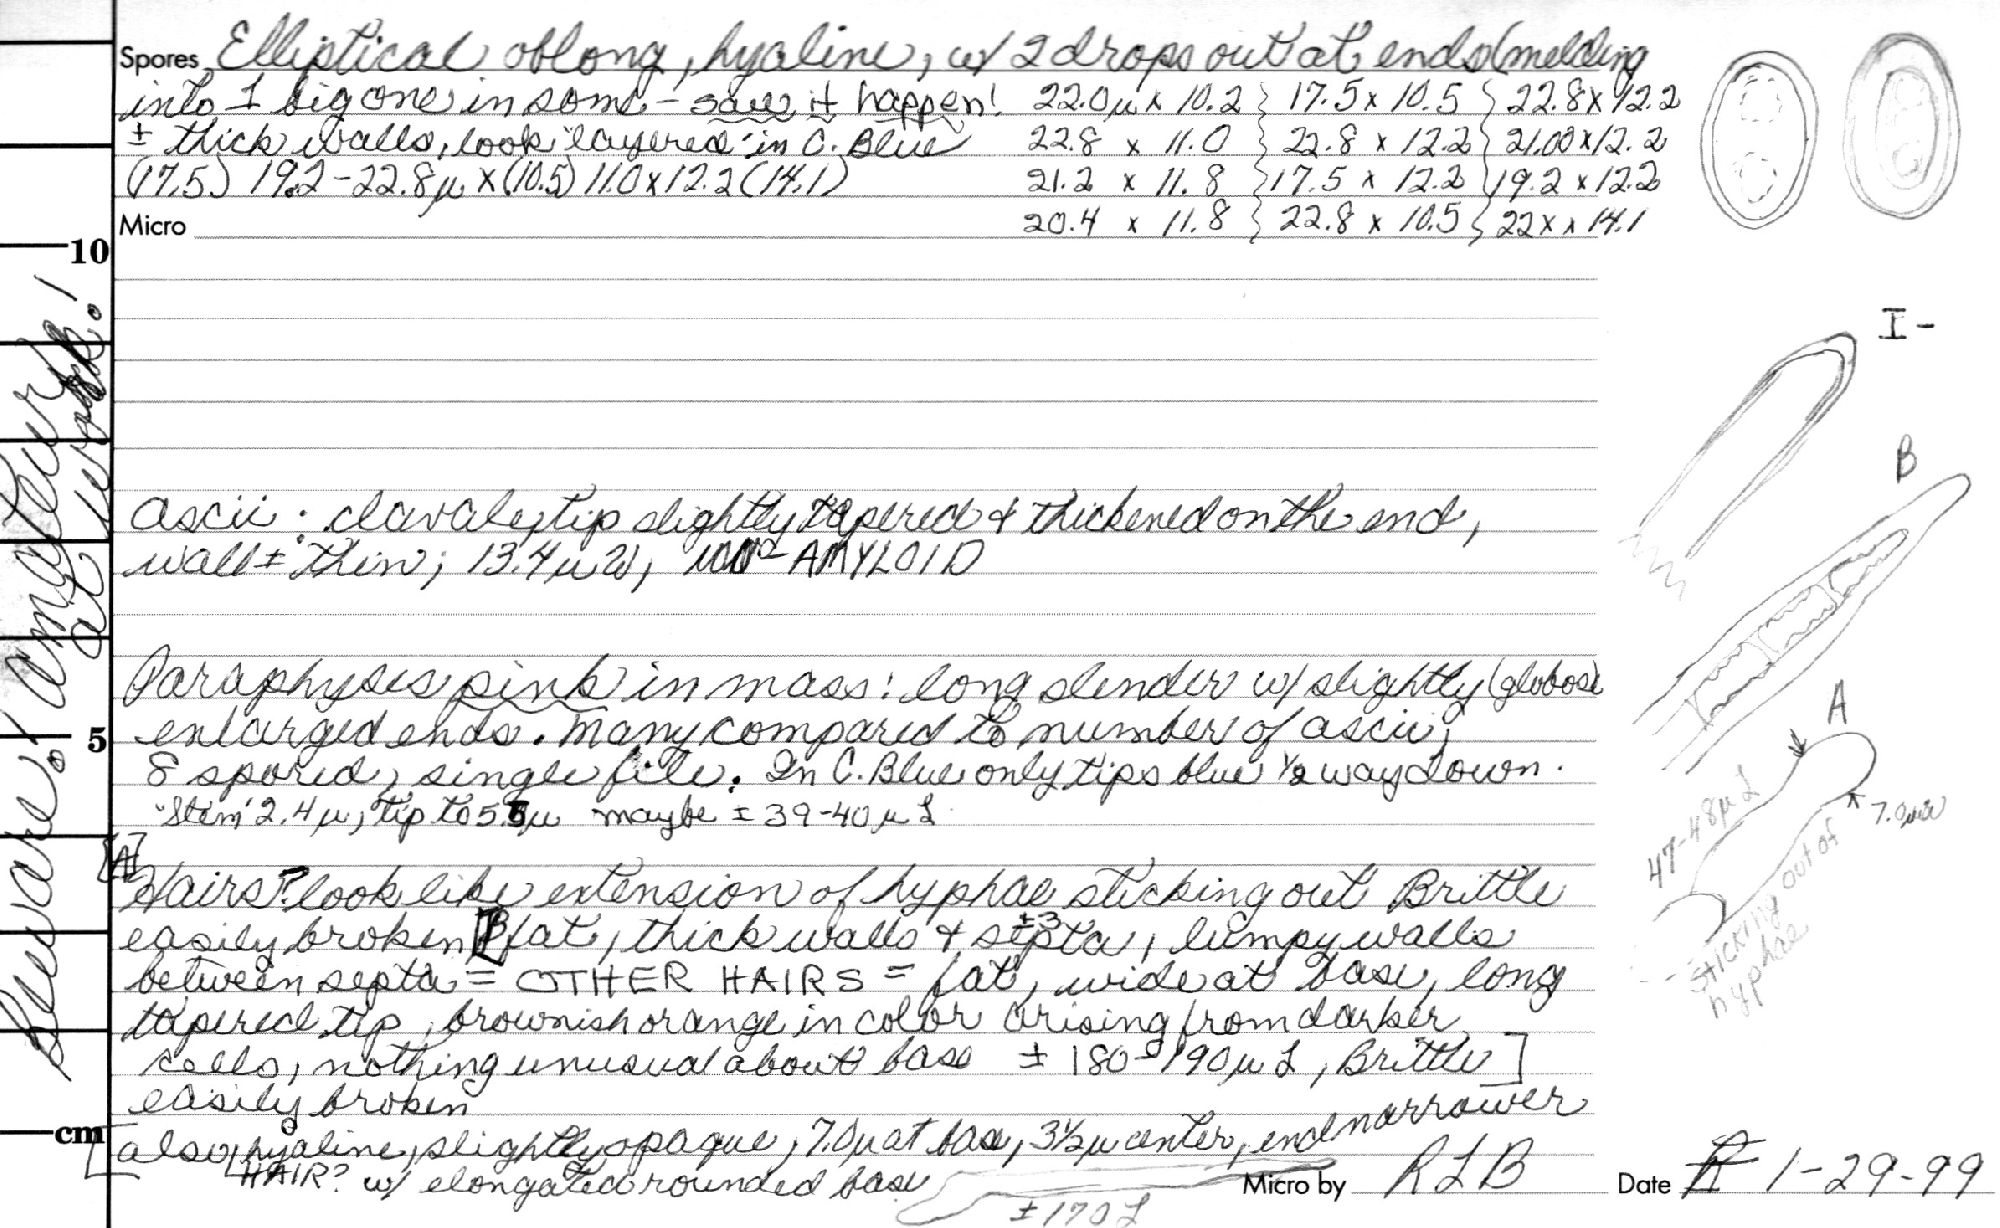 Spores Elliptical oblong, hyaline, w/ 2 drops out at ends (melding
into 1 big one in some - saw it happen! 22.0µ x 10.2 } 17.5 x 10.5 } 22.8 x 12.2
± thick walls, look "layered" in C. Blue 22.8 x 11.0 } 22.8 x 12.2 } 21.00 x 12.2
(17.5) 19.2 - 22.8µ x (10.5) 11.0 x 12.2 (14.1) 21.2 x 11.8 } 17.5 x 12.2 } 19.2 x 12.2
Micro 20.4 x 11.8 } 22.8 x 10.5 } 22 x 14.1
10
I -
B
ascii · clavate, tip slightly tapered & thickened on the end,
wall ± thin; 13.4µ W, AMYLOID
Paraphyses pink in mass: long slender w/ slightly (globose
enlarged ends. Many compared to number of ascii,
5
8 spored, single file. In C. Blue only tips blue ½ way down.
"Stem" 2.4µ, tip to 5.5µ maybe ± 39-40µ L
A
47-48µ L
7.0µ W
sticking out of
hyphae
[A]
Hairs? look like extension of hyphae sticking out Brittle
easily broken [B] fat, thick walls & ±3 septa, lumpy walls
between septa = OTHER HAIRS = fat, wide at base, long
tapered tip, brownish orange in color arising from darker
cells, nothing unusual about base ± 180-190µ L, Brittle]
easily broken
cm
[also, hyaline, slightly opaque, 7.0µ at base, 3½µ center, end narrower
HAIR? w/ elongated rounded base
± 170 L
Micro by RLB Date 1-29-99
Beware! Amateur
at work!